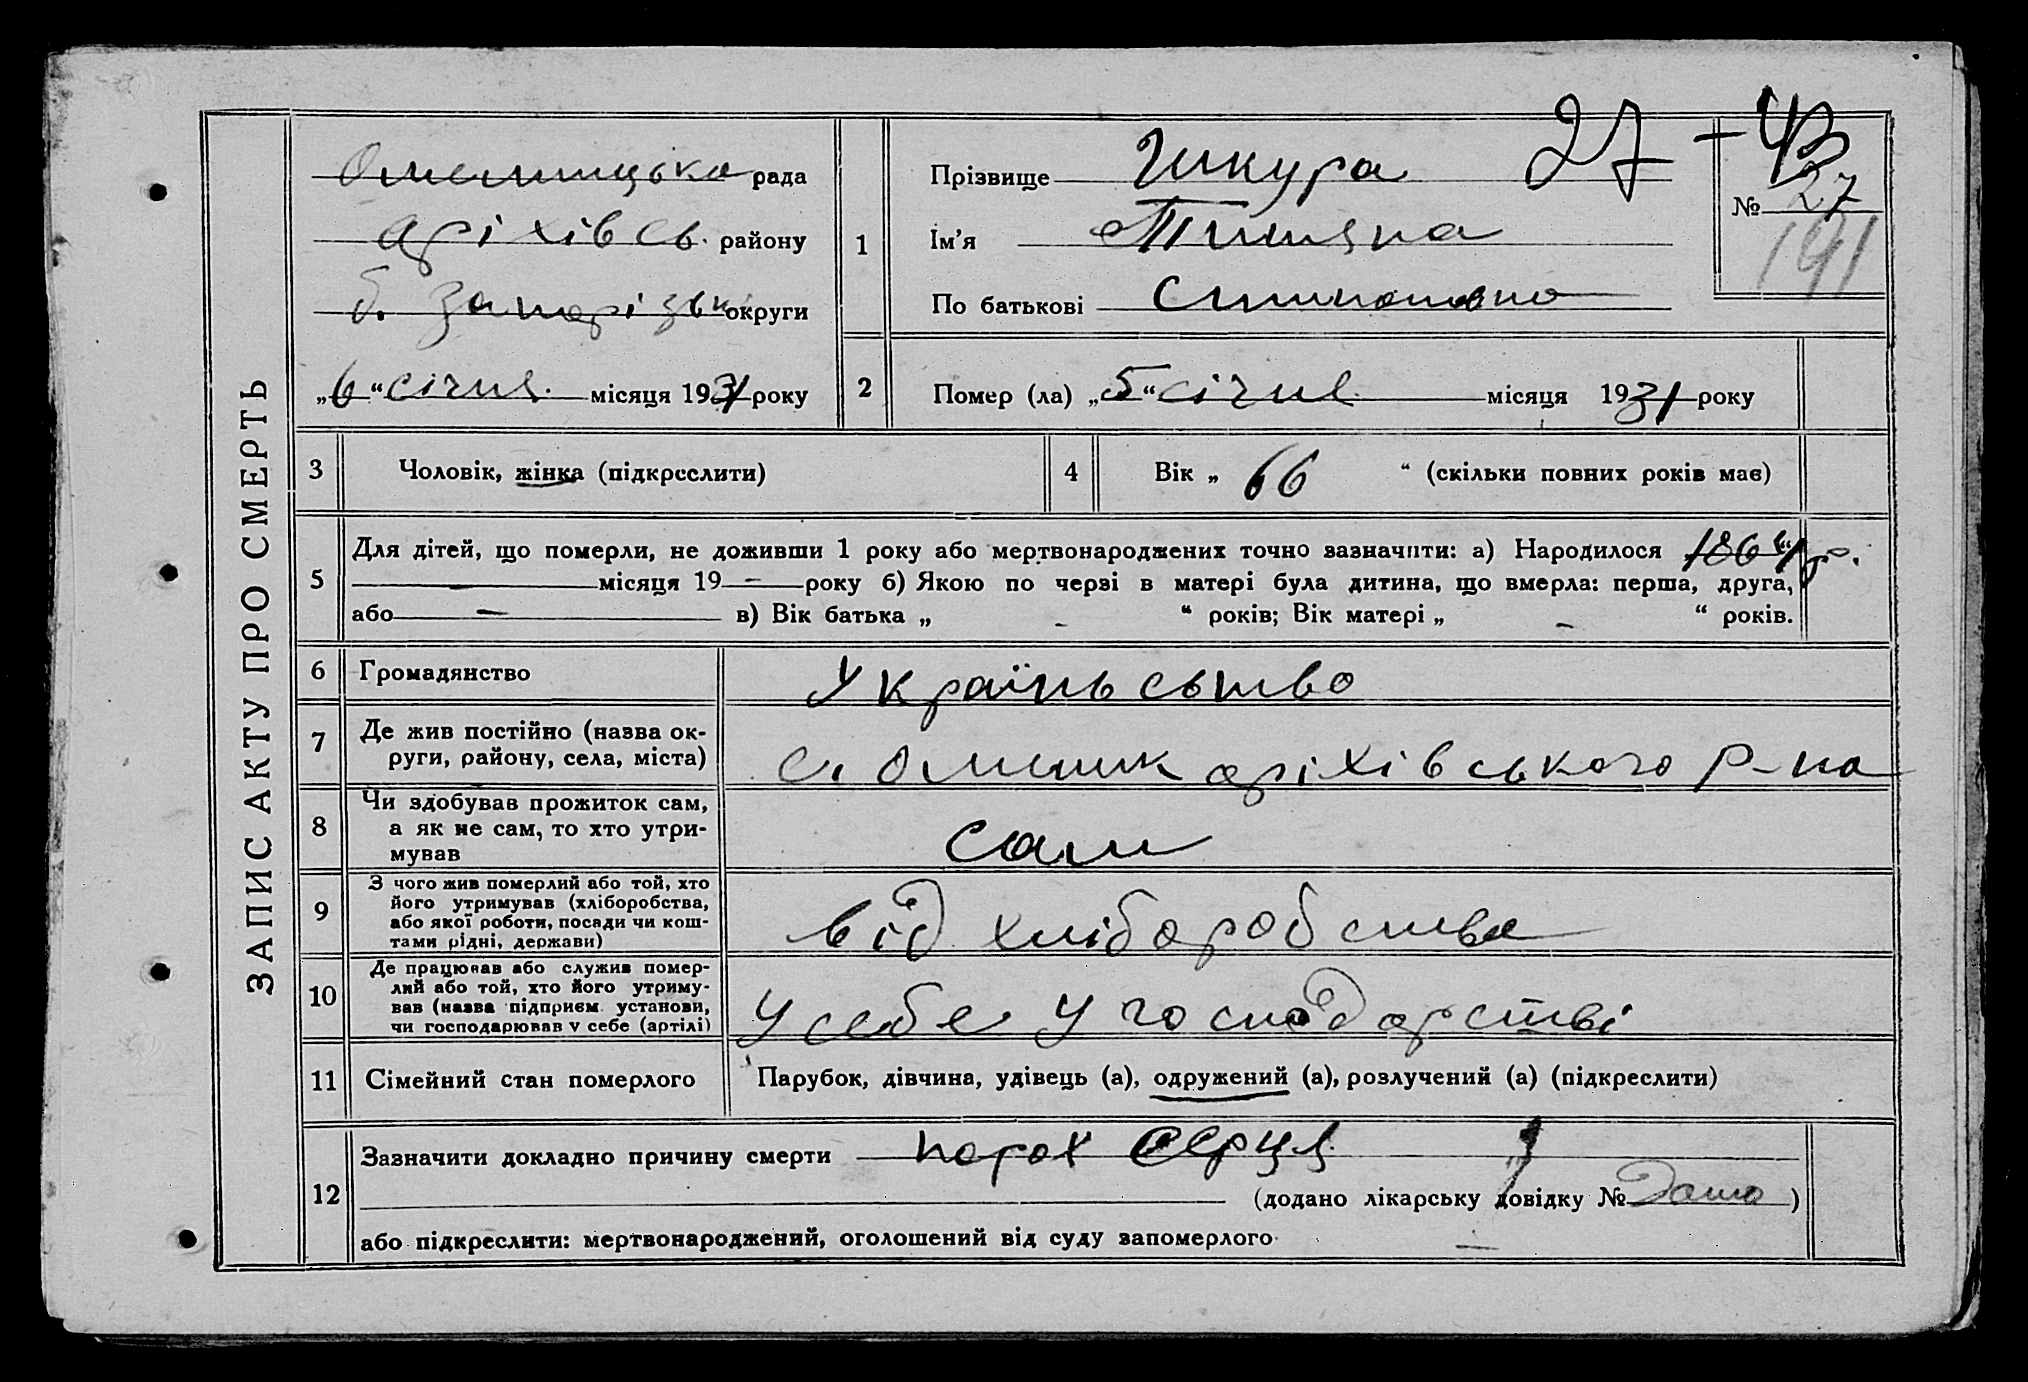 ЗАПИС АКТУ ПРО СМЕРТЬ
Омелницька рада
Оріхівсь. району
б. Запорізьк округи
„6“ січня місяця 1931 року
1
Прізвище Шкура 27 - 43
Ім'я Тетяна
По батькові
№ 27
191
2
Помер (ла) „5“ січня місяця 1931 року
3
Чоловік, жінка (підкреслити)
4
Вік „ 66 “ (скільки повних років має)
5
Для дітей, що померли, не доживши 1 року або мертвонароджених точно зазначити: а) Народилося 1864 р.
— місяця 19 — року б) Якою по черзі в матері була дитина, що вмерла: перша, друга,
або — в) Вік батька „ - “ років; Вік матері „ - “ років.
6
Громадянство
Україньство
7
Де жив постійно (назва ок-
руги, району, села, міста)
с. Омелник Оріхівського р-на
8
Чи здобував прожиток сам,
а як не сам, то хто утри-
мував
сам
9
З чого жив померлий або той, хто
його утримував (хліборобства,
або якої роботи, посади чи кош-
тами рідні, держави)
від хліборобства
10
Де працював або служив помер-
лий або той, хто його утриму-
вав (назва підприєм. установи,
чи господарював у себе (артілі)
У себе у господарстві
11
Сімейний стан померлого
Парубок, дівчина, удівець (а), одружений (а), розлучений (а) (підкреслити)
12
Зазначити докладно причину смерти порок серця
(додано лікарську довідку № )
або підкреслити: мертвонароджений, оголошений від суду запомерлого